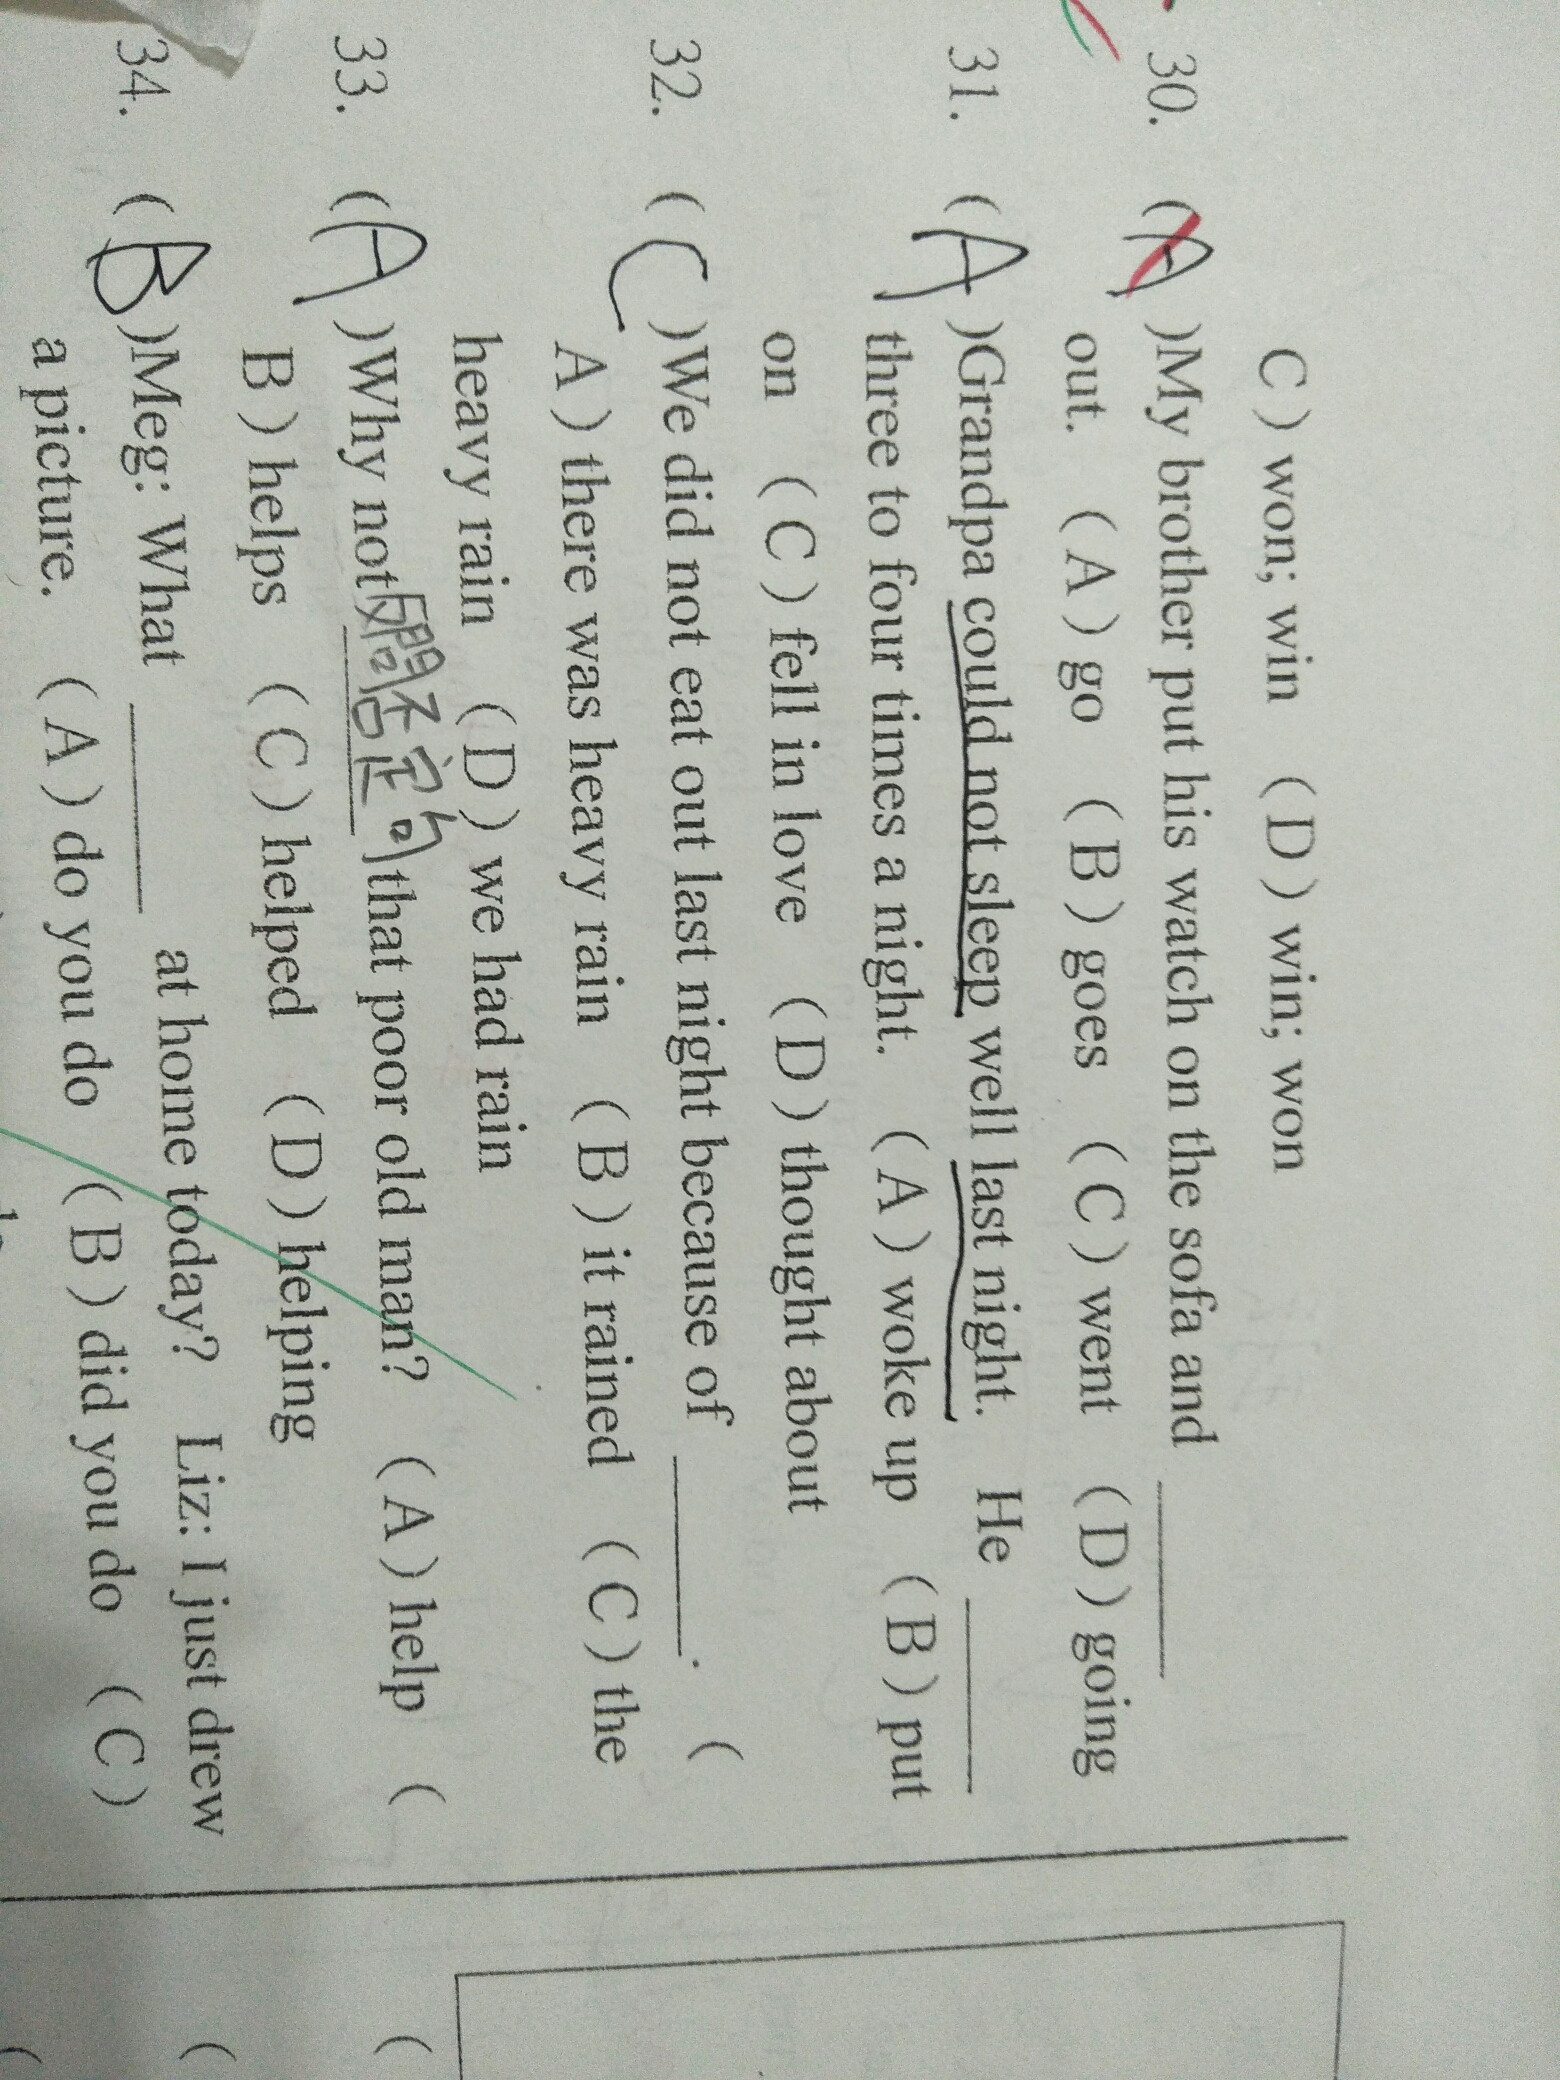 C ) won; win ( D ) win; won
30. ( A )My brother put his watch on the sofa and ______
out. ( A ) go ( B ) goes ( C ) went ( D ) going
31. ( A )Grandpa could not sleep well last night. He ______
three to four times a night. ( A ) woke up ( B ) put
on ( C ) fell in love ( D ) thought about
32. ( C )We did not eat out last night because of ______. (
A ) there was heavy rain ( B ) it rained ( C ) the
heavy rain ( D ) we had rain
33. ( A )Why not 反問否定句 that poor old man? ( A ) help (
B ) helps ( C ) helped ( D ) helping
34. ( B )Meg: What ______ at home today? Liz: I just drew
a picture. ( A ) do you do ( B ) did you do ( C )